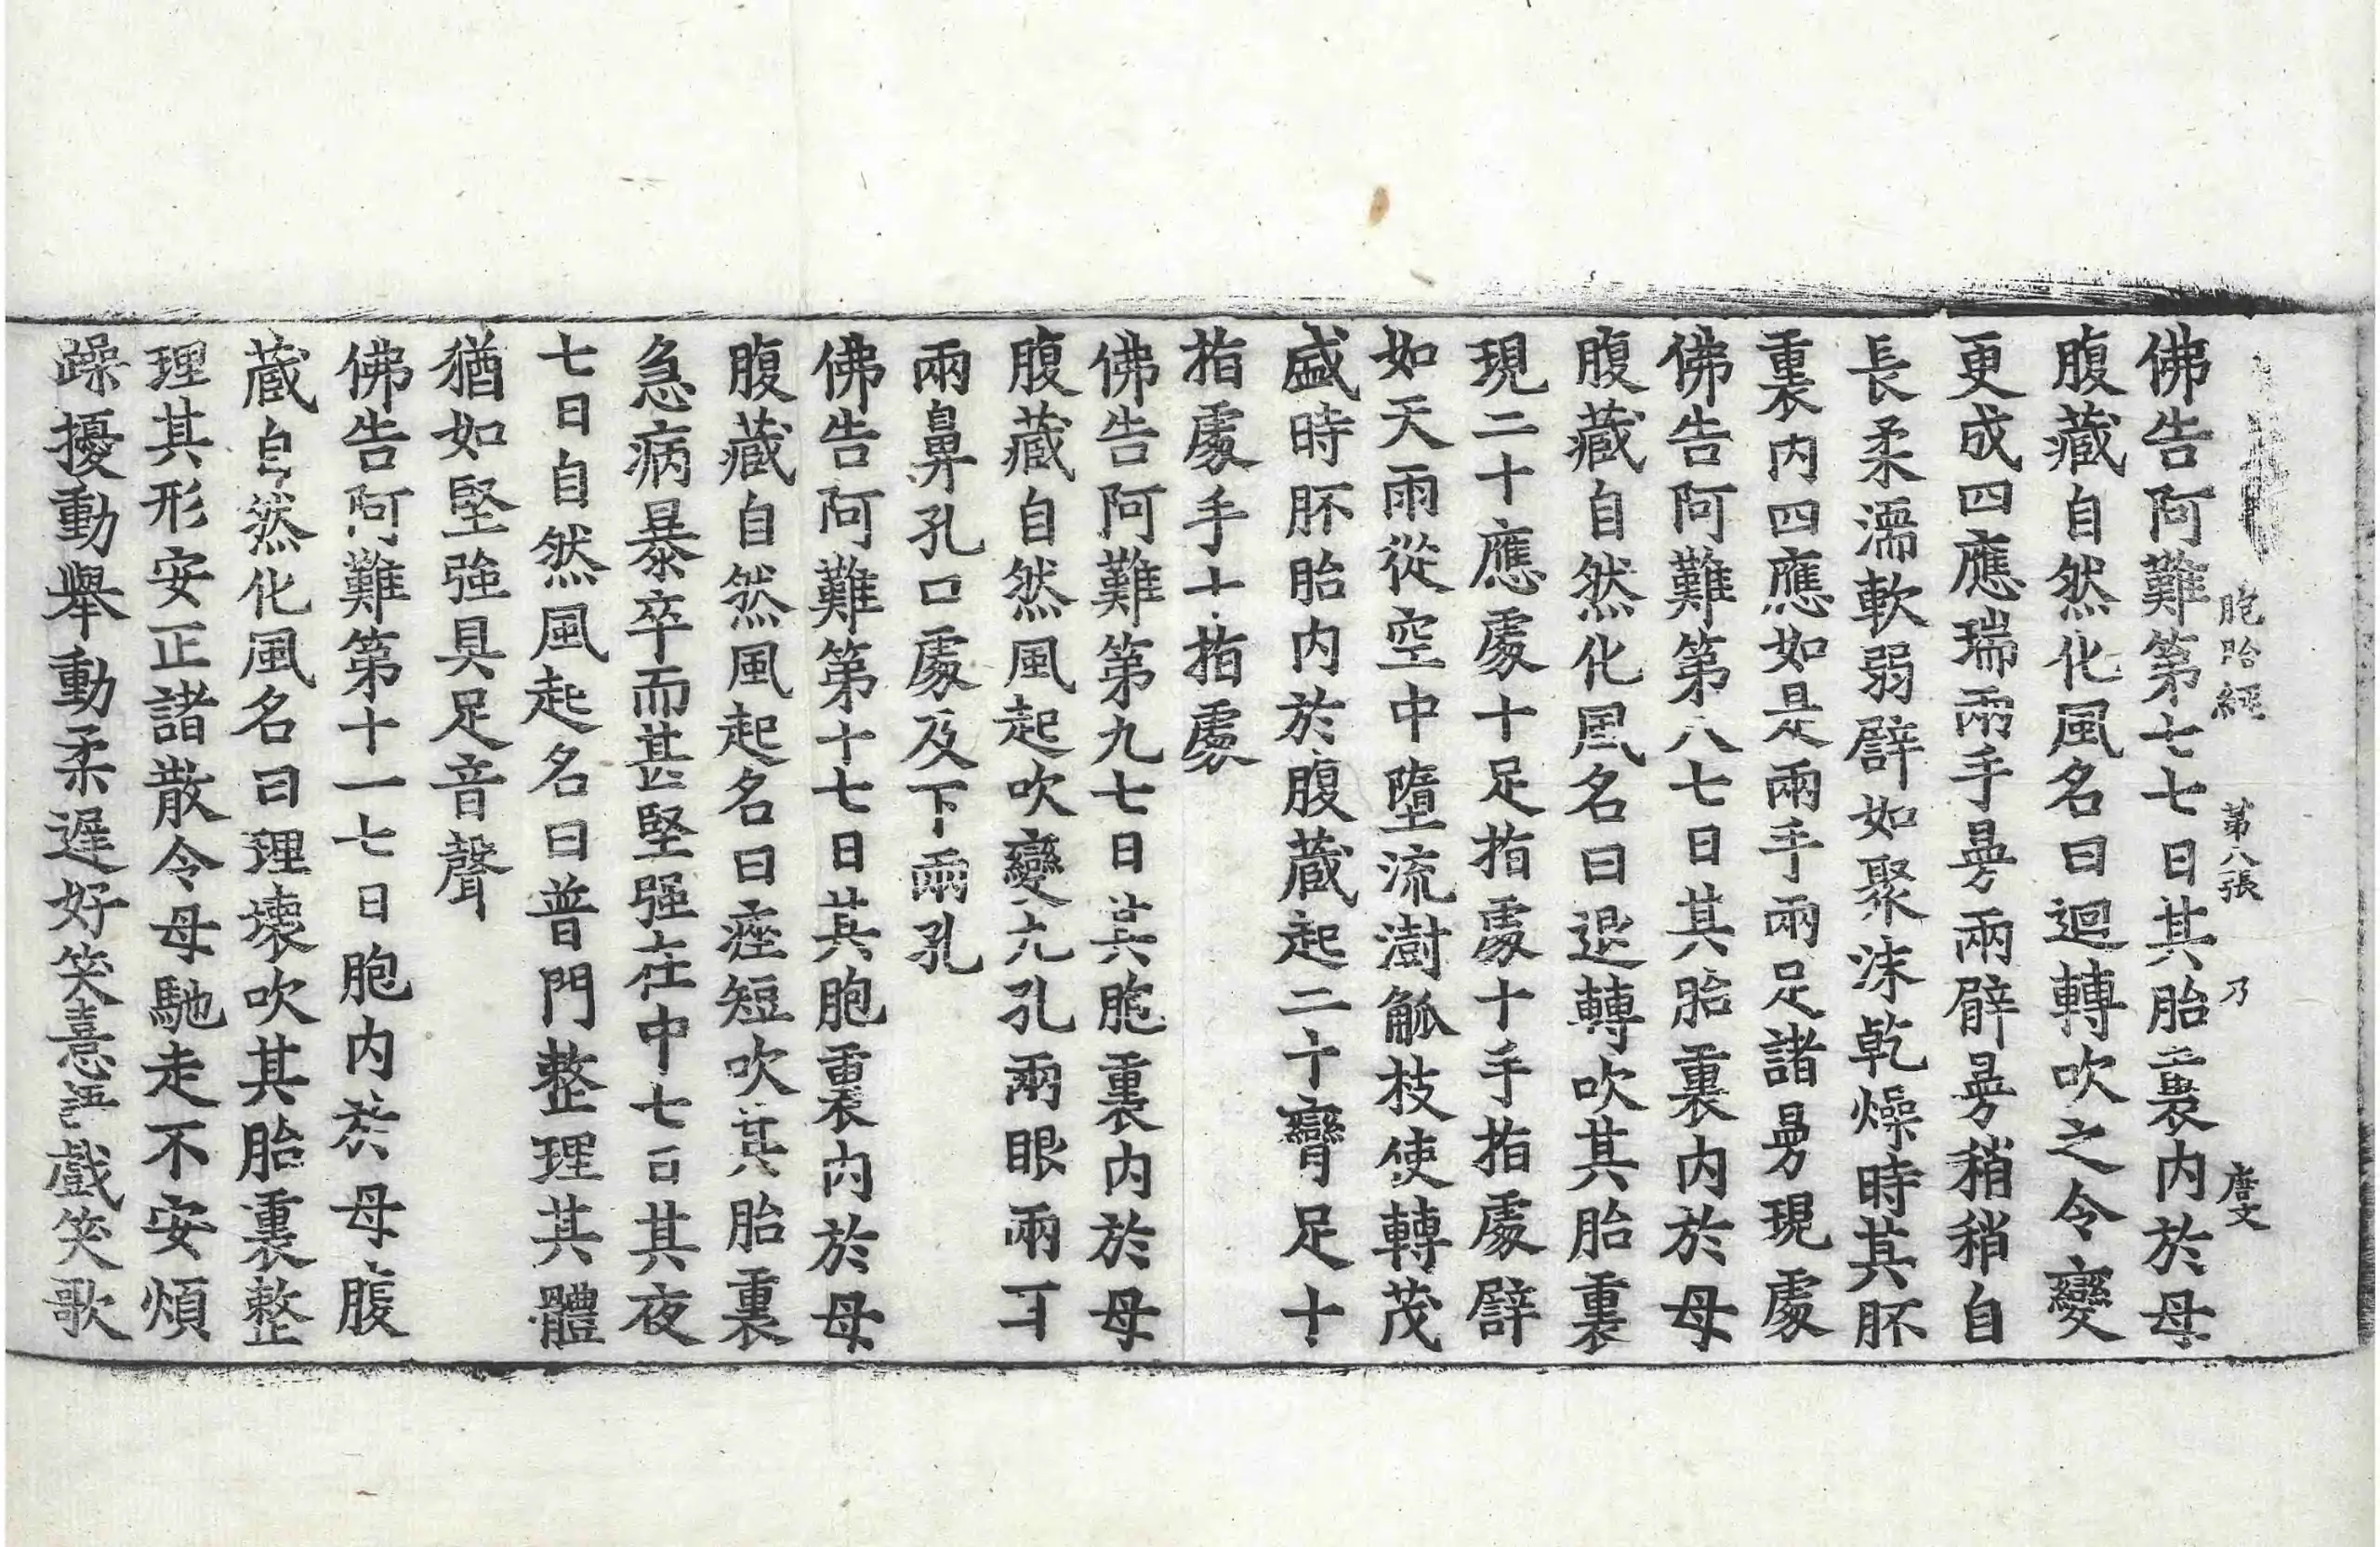 胞胎經 第八張 乃 唐文
佛告阿難第七七日其胎裏內於母
腹藏自然化風名曰迴轉吹之令變
更成四應瑞兩手曼兩臂曼稍稍自
長柔濡軟弱譬如聚沫乾燥時其胚
裏內四應如是兩手兩足諸曼現處
佛告阿難第八七日其胎裏內於母
腹藏自然化風名曰退轉吹其胎裏
現二十應處十足指處十手指處譬
如天雨從空中墮流澍觚枝使轉茂
盛時胚胎內於腹藏起二十臠足十
指處手十指處
佛告阿難第九七日其胞裏內於母
腹藏自然風起吹變九孔兩眼兩耳
兩鼻孔口處及下兩孔
佛告阿難第十七日其胞裏內於母
腹藏自然風起名曰痤短吹其胎裏
急病暴卒而甚堅强在中七日其夜
七日自然風起名曰普門整理其體
猶如堅強具足音聲
佛告阿難第十一七日胞內於母腹
藏自然化風名曰理壞吹其胎裏整
理其形安正諸散令母馳走不安煩
躁擾動舉動柔遲好笑憙語戲笑歌